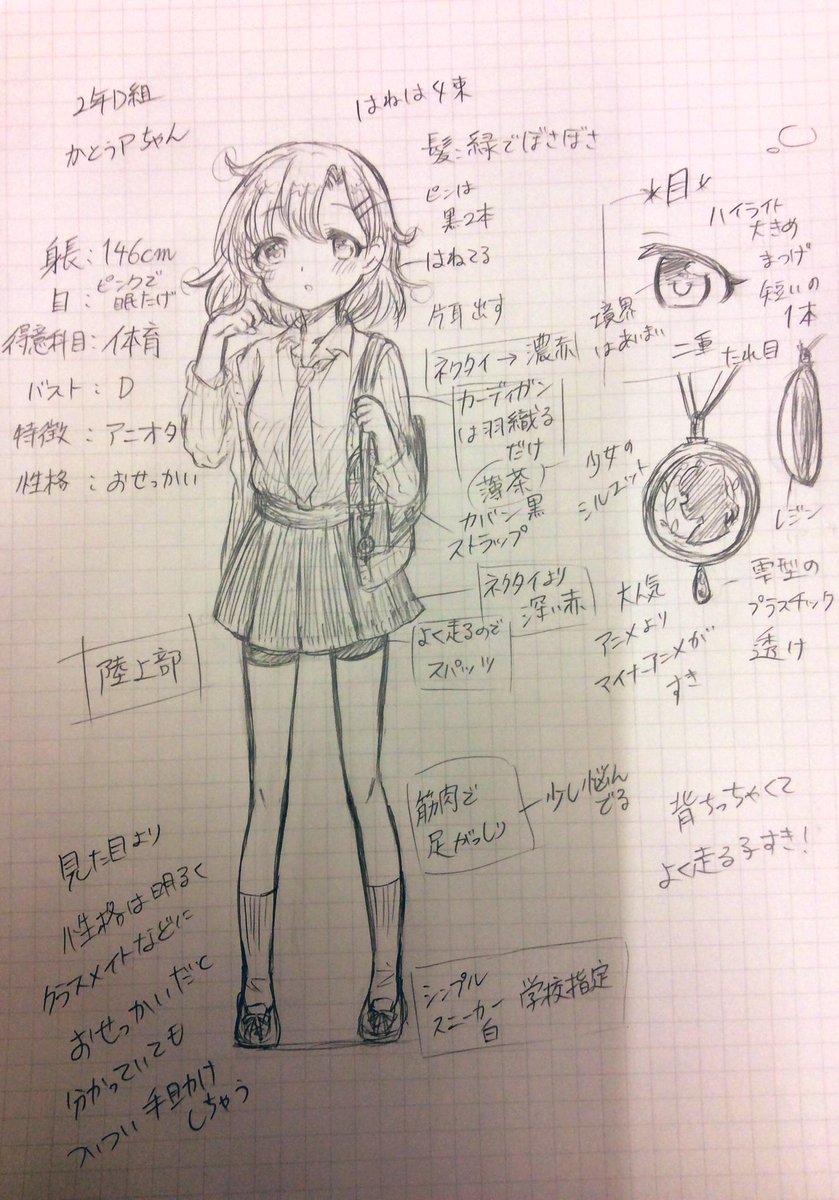 2年D組
かとうPちゃん
はねは4束
髪:緑でぼさぼさ
ピンは
黒2本
はねてる
片耳出す
身長:146cm
目:ピンクで
眠たげ
得意科目:体育
バスト:D
特徴:アニオタ
性格:おせっかい
*目*
ハイライト
大きめ
まつげ
短いの
1本
境界
はあいまい
二重
たれ目
ネクタイ→濃赤
カーディガン
は羽織る
だけ
薄茶
カバン黒
ストラップ
少女の
シルエット
レジン
雫型の
プラスチック
透け
ネクタイより
深い赤
大人気
アニメより
マイナーアニメが
すき
よく走るので
スパッツ
陸上部
筋肉で
足がっしり
少し悩ん
でる
背ちっちゃくて
よく走る子すき!
見た目より
性格は明るく
クラスメイトなどに
おせっかいだと
分かっていても
ついつい手助け
しちゃう
シンプル
スニーカー
白
学校指定